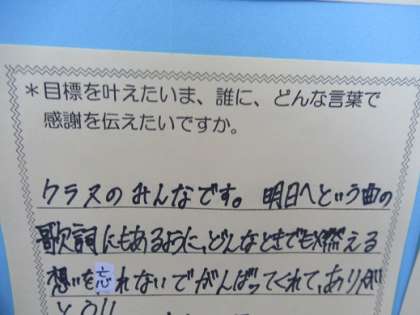 *目標を叶えたいま、誰に、どんな言葉で
感謝を伝えたいですか。
クラスのみんなです。明日へという曲の
歌詞にもあるように、どんなときでも燃える
想いを忘れないでがんばってくれて、ありが
とう!!